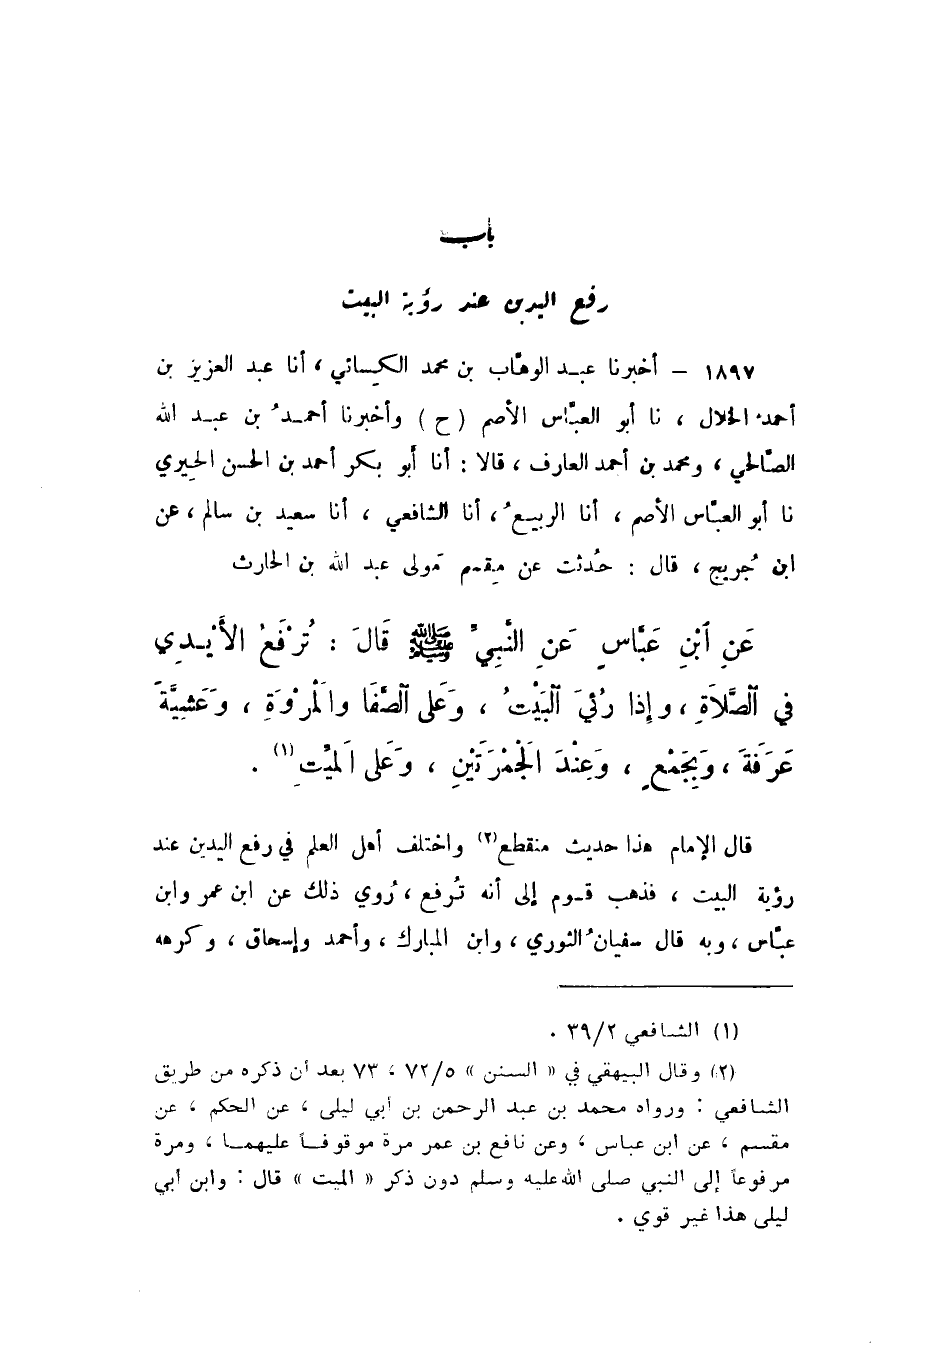 باب
رفع اليدين عند رؤية البيت
١٨٩٧ – أخبرنا عبد الوهّاب بن محمد الكيسائي ، أنا عبد العزيز بن
أحمد الخلال ، نا أبو العبّاس الأصم ( ح ) وأخبرنا أحمدُ بن عبد الله
الصّالحي ، ومحمد بن أحمد العارف ، قالا : أنا أبو بكر أحمد بن الحسن الحِيري
نا أبو العبّاس الأصم ، أنا الربيعُ ، أنا الشافعي ، أنا سعيد بن سالم ، عن
ابن جُريج ، قال : حُدثت عن مِقسم مَولى عبد الله بن الحارث
عَنِ ٱبْنِ عَبَّاسٍ عَنِ النَّبِيِّ ﷺ قَالَ : تُرْفَعُ الأَيْدِي
فِي ٱلصَّلَاةِ ، وإذا رُئِيَ ٱلبَيْتُ ، وَعَلى ٱلصَّفَا والمَرْوَةِ ، وَعَشِيَّةَ
عَرَفَةَ ، وَبِجَمْعٍ ، وَعِنْدَ الجَمْرَتَيْنِ ، وَعَلى المَيِّتِ (١) .
قال الإمام هذا حديث منقطع (٢) واختلف أهل العلم في رفع اليدين عند
رؤية البيت ، فذهب قوم إلى أنه تُرفع ، رُوي ذلك عن ابن عمر وابن
عبّاس ، وبه قال سفيانُ الثوري ، وابن المبارك ، وأحمد وإسحاق ، وكرهه
(١) الشافعي ٣٩/٢ .
(٢) وقال البيهقي في « السنن » ٧٢/٥ ، ٧٣ بعد أن ذكره من طريق
الشافعي : ورواه محمد بن عبد الرحمن بن أبي ليلى ، عن الحكم ، عن
مقسم ، عن ابن عباس ، وعن نافع بن عمر مرة موقوفاً عليهما ، ومرة
مرفوعاً إلى النبي صلى الله عليه وسلم دون ذكر « الميت » قال : وابن أبي
ليلى هذا غير قوي .